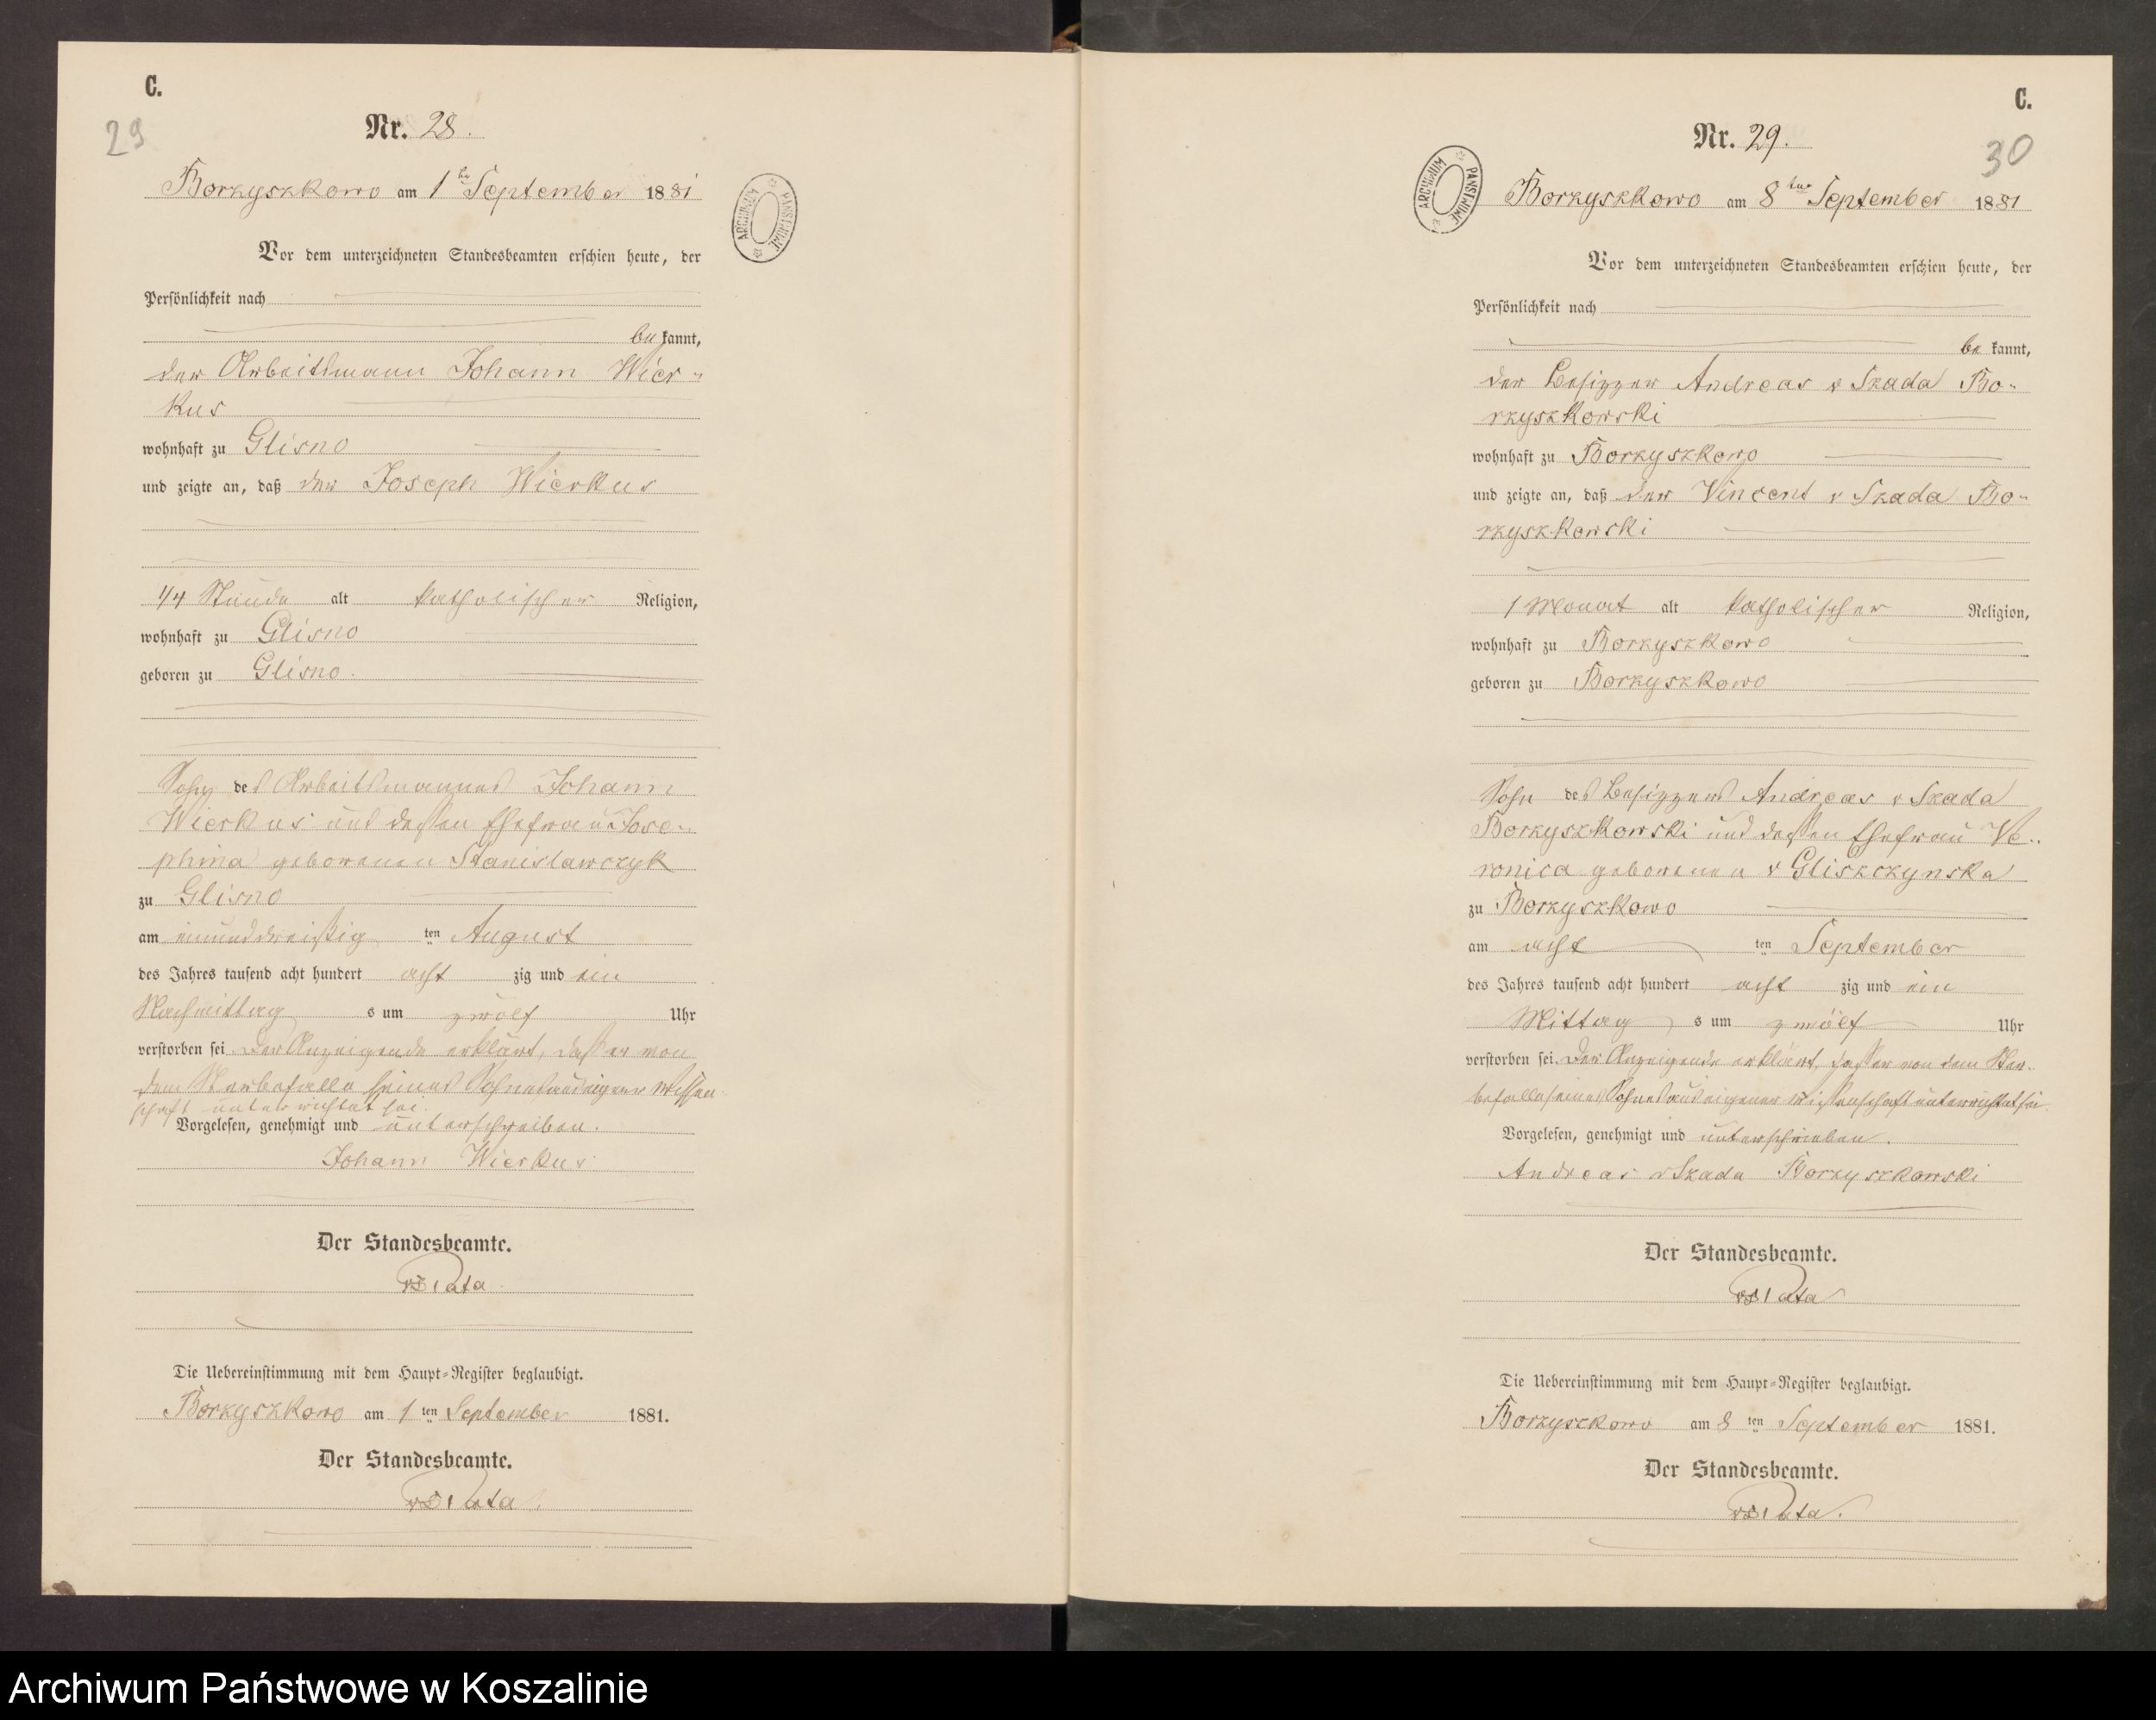 C.
29
Nr. 28.
Borzyszkowo am 1ten September 1881
Vor dem unterzeichneten Standesbeamten erschien heute, der
Persönlichkeit nach
be kannt,
der Arbeitsmann Johann Wier-
kus
wohnhaft zu Glisno
und zeigte an, daß der Joseph Wierkus
1/4 Stunde alt katholischer Religion,
wohnhaft zu Glisno
geboren zu Glisno.
Sohn des Arbeitsmannes Johann
Wierkus und dessen Ehefrau Jose-
phina geborenen Stanislawczyk
zu Glisno
am einunddreißig ten August
des Jahres tausend acht hundert acht zig und ein
Nachmittag s um zwölf Uhr
verstorben sei. Der Anzeigende erklärt, daß er von
dem Sterbefalle seines Sohnes aus eigener Wissen-
schaft unterrichtet sei.
Vorgelesen, genehmigt und unterschreiben.
Johann Wierkus
Der Standesbeamte.
Die Uebereinstimmung mit dem Haupt-Register beglaubigt.
Borzyszkowo am 1 ten September 1881.
Der Standesbeamte.
ARCHIWUM PAŃSTWOWE
C.
30
Nr. 29.
Borzyszkowo am 8ten September 1881
Vor dem unterzeichneten Standesbeamten erschien heute, der
Persönlichkeit nach
be kannt,
der Besitzer Andreas v Skada Bo-
rzyszkowski
wohnhaft zu Borzyszkowo
und zeigte an, daß der Vincent v Skada Bo-
rzyszkowski
1 Monat alt katholischer Religion,
wohnhaft zu Borzyszkowo
geboren zu Borzyszkowo
Sohn des Besitzers Andreas v Skada
Borzyszkowski und dessen Ehefrau Ve-
ronica geborenen v Gliszczynska
zu Borzyszkowo
am acht ten September
des Jahres tausend acht hundert acht zig und ein
Mittag s um zwölf Uhr
verstorben sei. Der Anzeigende erklärt, daß er von dem Ster-
befalle seines Sohnes aus eigener Wissenschaft unterrichtet sei.
Vorgelesen, genehmigt und unterschrieben.
Andreas v Skada Borzyszkowski
Der Standesbeamte.
Die Uebereinstimmung mit dem Haupt-Register beglaubigt.
Borzyszkowo am 8 ten September 1881.
Der Standesbeamte.
ARCHIWUM PAŃSTWOWE
Archiwum Państwowe w Koszalinie